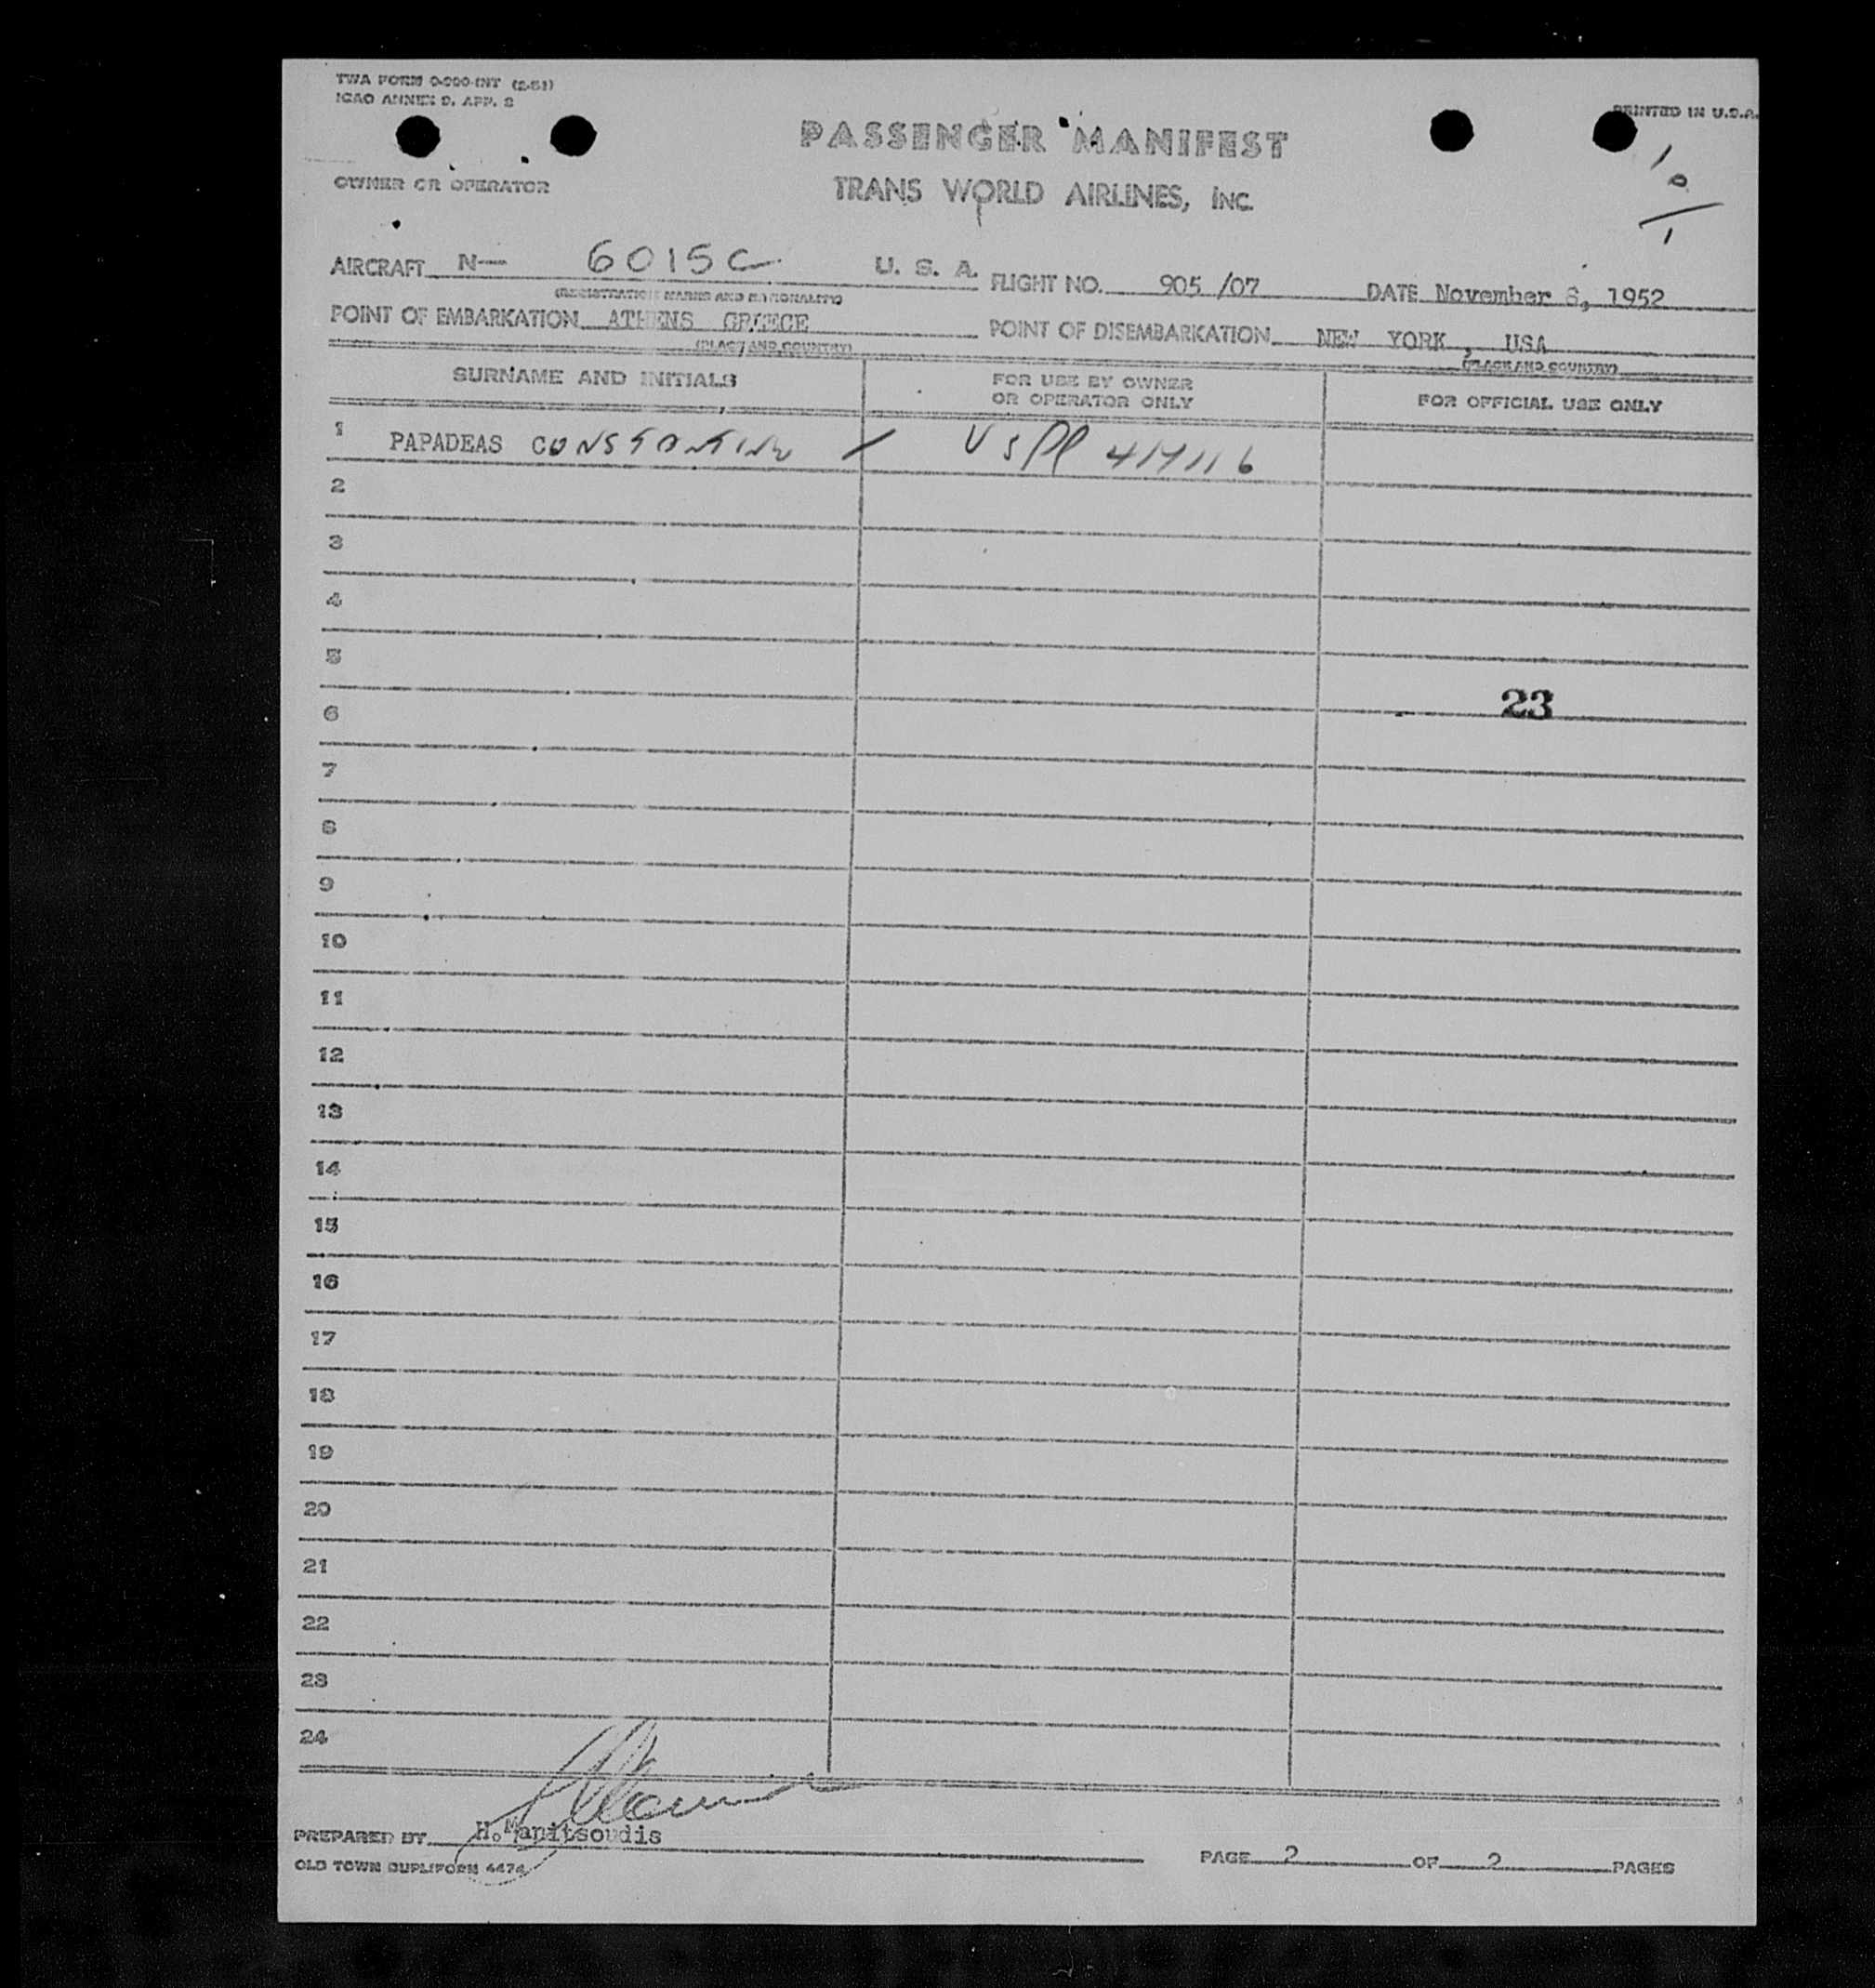 TWA FORM 0-200-INT (2-51)
ICAO ANNEX 9, APP. 2
PRINTED IN U.S.A.
PASSENGER MANIFEST
OWNER OR OPERATOR TRANS WORLD AIRLINES, INC.
AIRCRAFT N— 6015C U. S. A. FLIGHT NO. 905 /07 DATE November 8, 1952
(REGISTRATION MARKS AND NATIONALITY)
POINT OF EMBARKATION ATHENS GREECE POINT OF DISEMBARKATION NEW YORK , USA
(PLACE AND COUNTRY) (PLACE AND COUNTRY)
SURNAME AND INITIALS FOR USE BY OWNER OR OPERATOR ONLY FOR OFFICIAL USE ONLY
1 PAPADEAS CONSTANTINE / USPP
2
3
4
5
23
6
7
8
9
10
11
12
13
14
15
16
17
18
19
20
21
22
23
24
PREPARED BY H. Manitsoudis
OLD TOWN DUPLIFORM 4474
PAGE 2 OF 2 PAGES